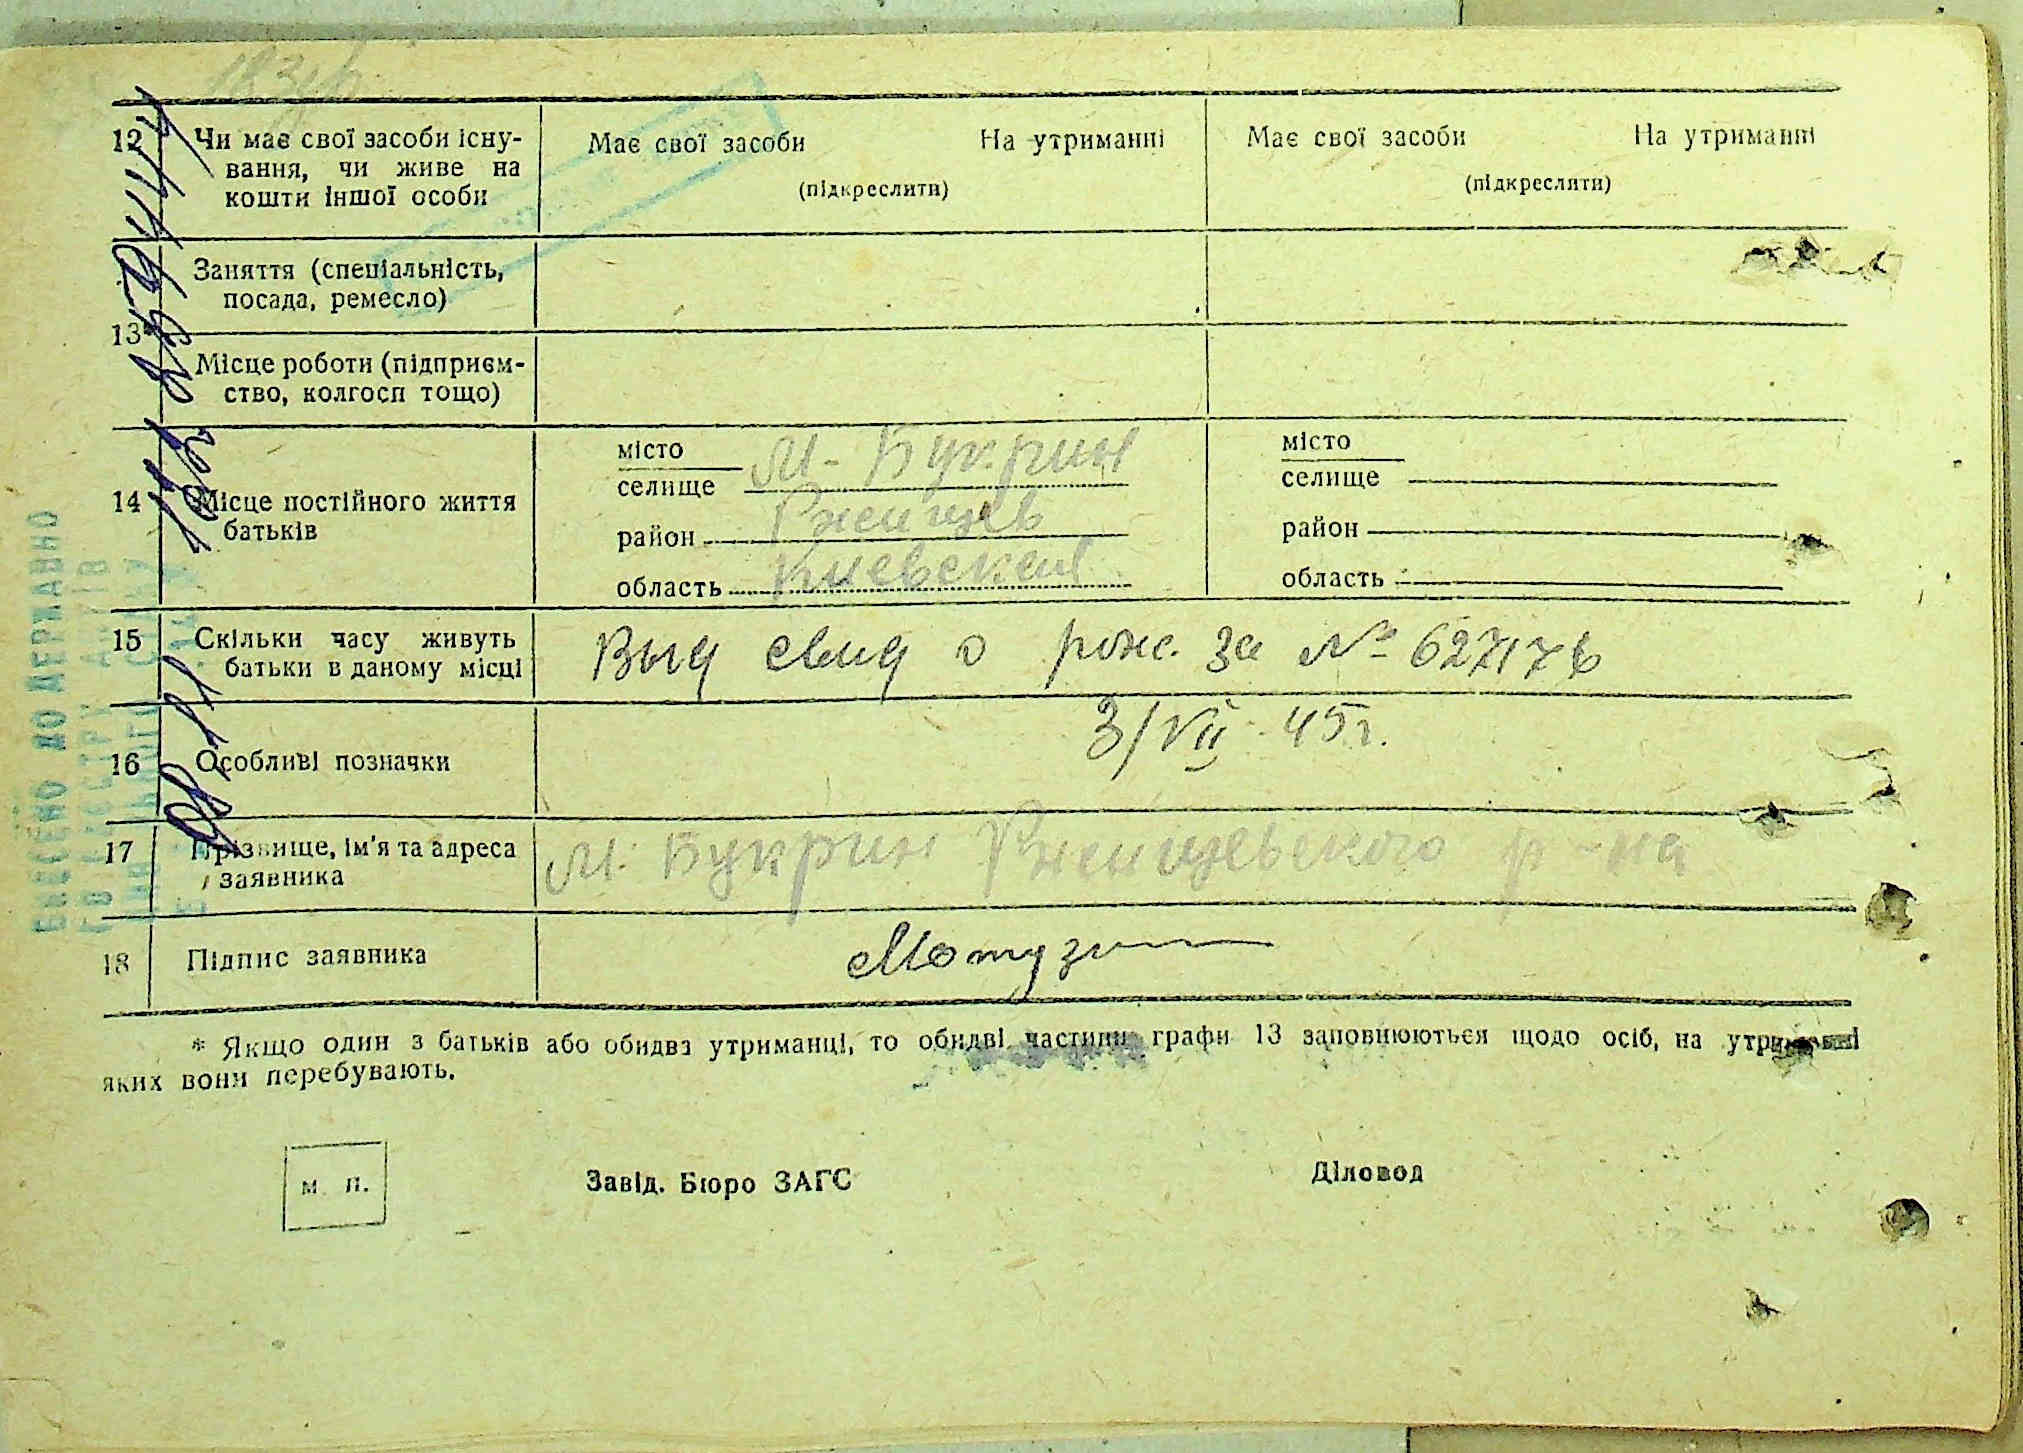 12 Чи має свої засоби існу-
вання, чи живе на
кошти іншої особи
Має свої засоби На утриманні
(підкреслити)
Має свої засоби На утриманні
(підкреслити)
13*
Заняття (спеціальність,
посада, ремесло)
Місце роботи (підприєм-
ство, колгосп тощо)
14 Місце постійного життя
батьків
місто
селище М-Букрин
район Ржищев
область Киевская
місто
селище
район
область
15 Скільки часу живуть
батьки в даному місці
Выд свид о рожд. за № 627176
16 Особливі позначки
3/VII-45г.
17 Прізвище, ім'я та адреса
заявника
М. Букрин Ржищевского р-на
18 Підпис заявника
* Якщо один з батьків або обидва утриманці, то обидві частини графи 13 заповнюються щодо осіб, на утриманні
яких вони перебувають.
м. п.
Завід. Бюро ЗАГС
Діловод
ВНЕСЕНО ДО ДЕРЖАВНО